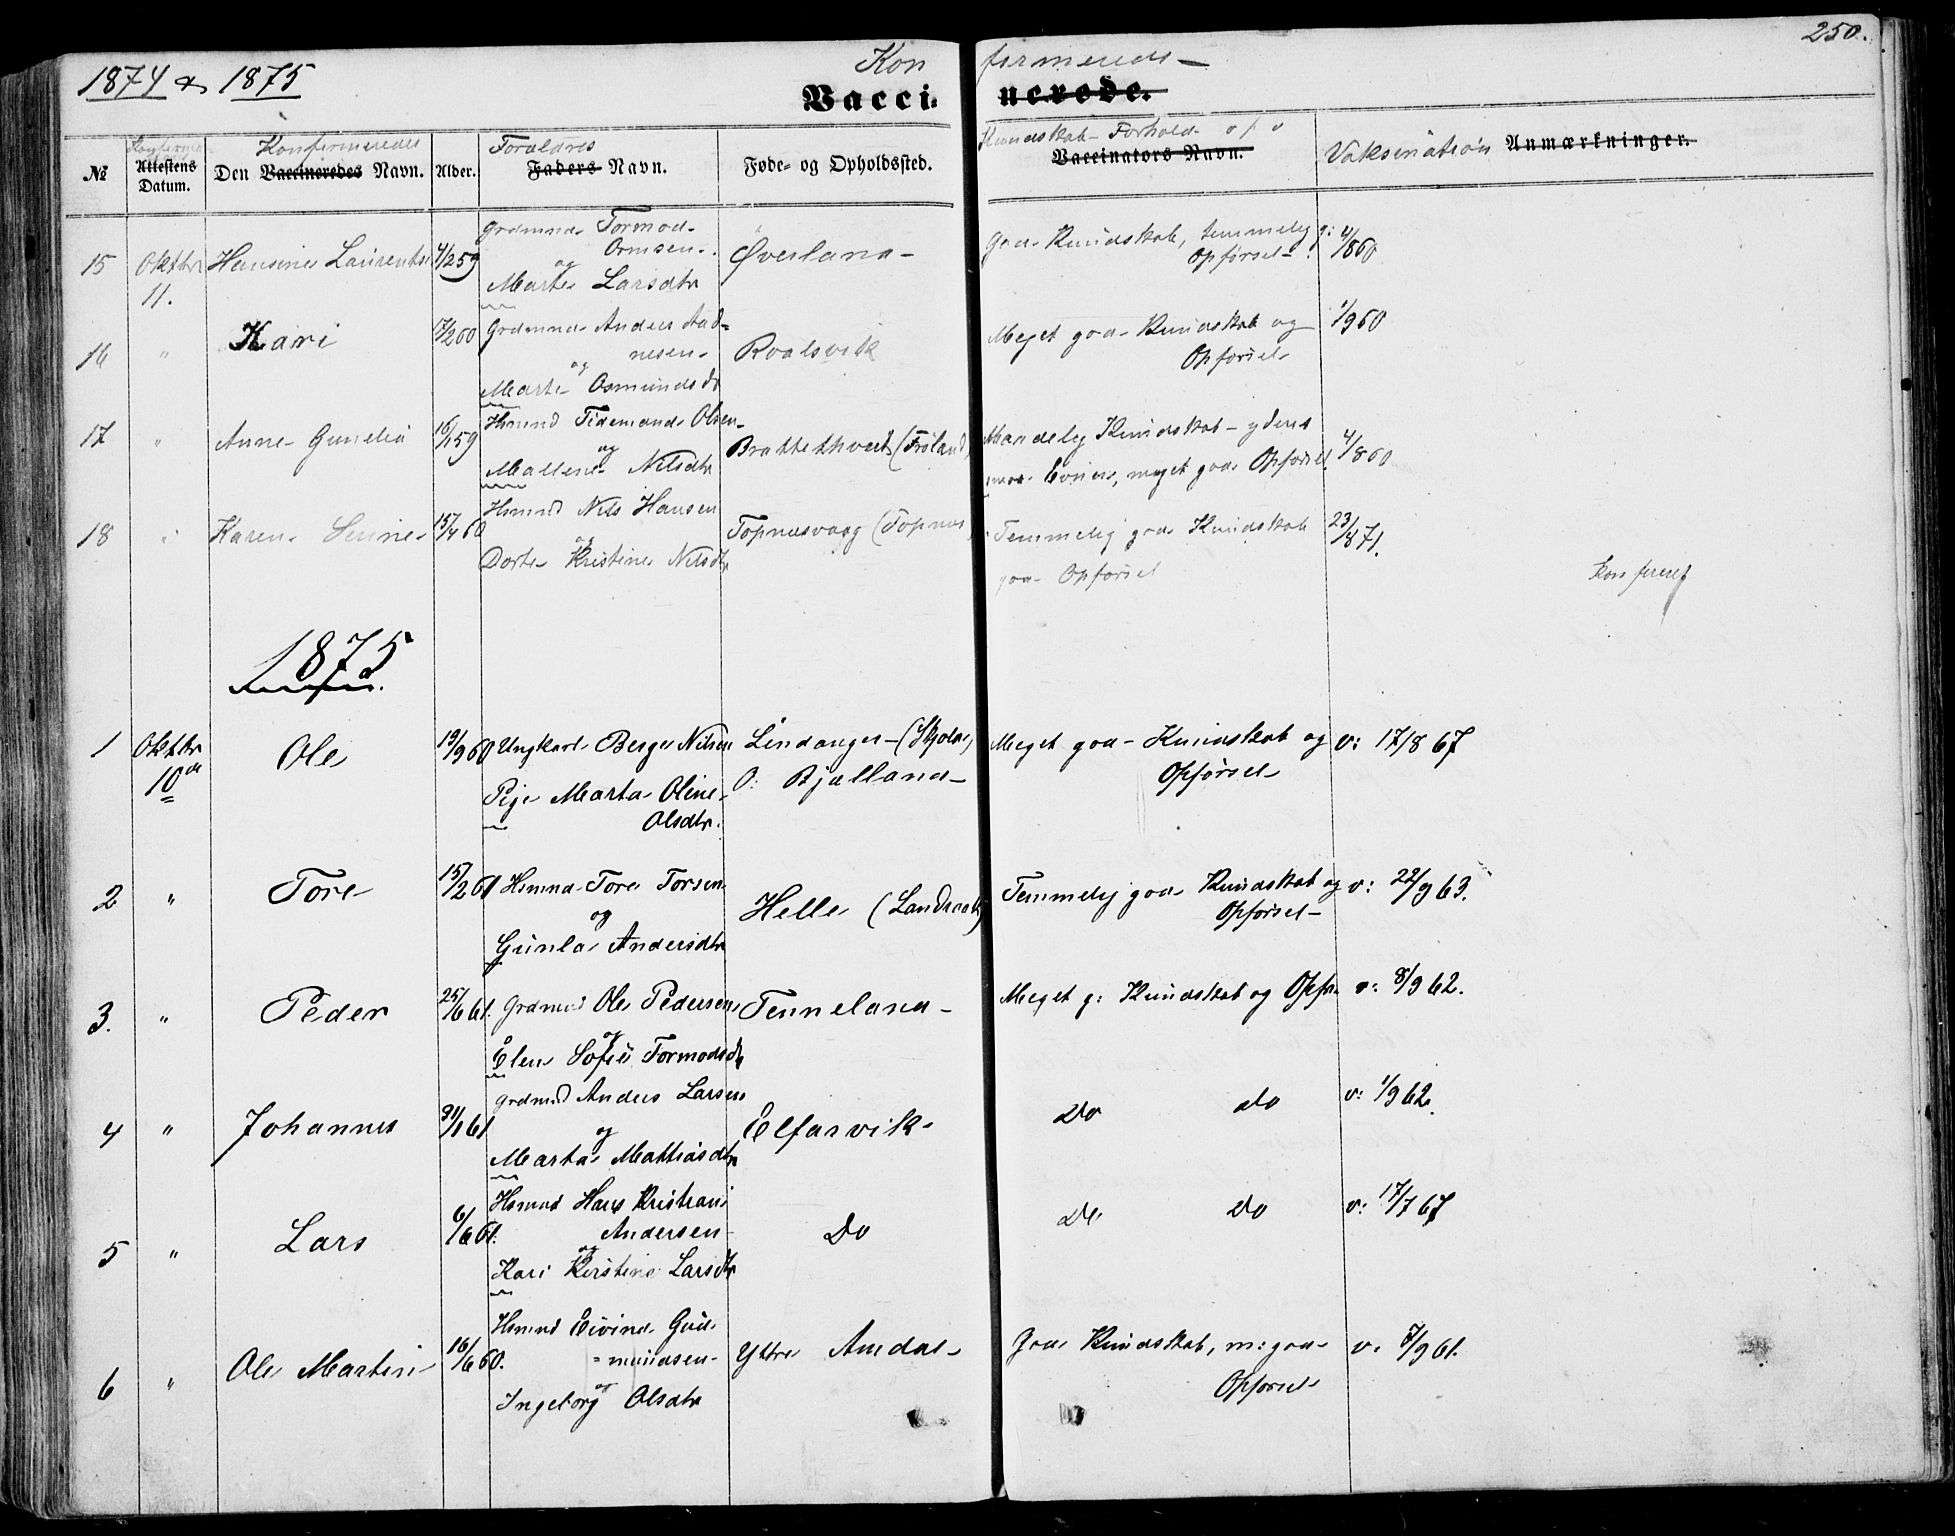 250.
1874 & 1875
Konfirmerede
Vaccinerede.
№
Attestens Datum.
Konfirmeredes
Den Vaccineredes Navn.
Alder.
Foraldres
Faders Navn.
Føde- og Opholdssted.
Kundskab- Forhold- o f v
Vaccinators Navn.
Vaksination Anmærkninger.
15 Oktbr 11. Hansine Laurentse 4/2 59
Grdmnd- Tormod-
Ormsen-
og
Marte Larsdtr
Øverland-
God- Kundskab, temmelig g:
Opførsel-
4/8 60
16 " Kari 17/2 60
Grdmnd- Anders Aad=
nesen-
og
Marte- Osmundsdtr
Roalsvik
Meget god- Kundskab og
Opførsel-
1/9 60
17 " Anne- Gunelia 16/1 59
Hsmnd Tidemand- Olsen-
og
Mallene- Nilsdtr
Brattethveit (Frøland)
Maadelig Kundskab- ydens
Evner, meget god- Opførsel
4/8 60
18 " Karen- Serine- 15/4 60
Hsmnd Nils Hansen
og
Dorte- Kristine Nilsdtr
Topnesvaag (Topnes)
Temmelig god- Kundskab
god- Opførsel
23/8 71.
Konfereret
1875
1 Oktbr 10de Ole 19/9 60
Ungkarl- Berge Nilsen
Pige Marta- Oline-
Olsdtr.
Lindanger- (Skjolde)
O: Bjelland-
Meget god- Kundskab og
Opførsel-
v: 17/8 67
2 " Tore 15/2 61
Hsmnd- Tore Torsen
og
Gunla- Andersdtr
Helle (Landraak)
Temmelig god- Kundskab og
Opførsel-
v: 22/9 63.
3. " Peder 25/6 61.
Grdmnd Ole Pedersen
og
Elen Sofie Tormodsdtr
Tenneland-
Meget g: Kundskab og Opfør
v: 8/9 62.
4 " Johannes 31/1 61
Grdmnd Anders Larsen
og
Marta- Mattiasdtr
Elfarvik-
Do do
v: 1/9 62.
5 " Lars 6/6 61.
Hsmnd Hans Kristian
Andersen-
og
Kari Kirstine Larsdtr
Do
Do Do
v: 17/7 67
6 " Ole Martin- 16/6 60.
Hsmnd Eivind- Gud-
=mundsen-
og
Ingeborg Olsdtr
Yttre Amdal-
God- Kundskab, m: god-
Opførsel-
v. 7/9 61.